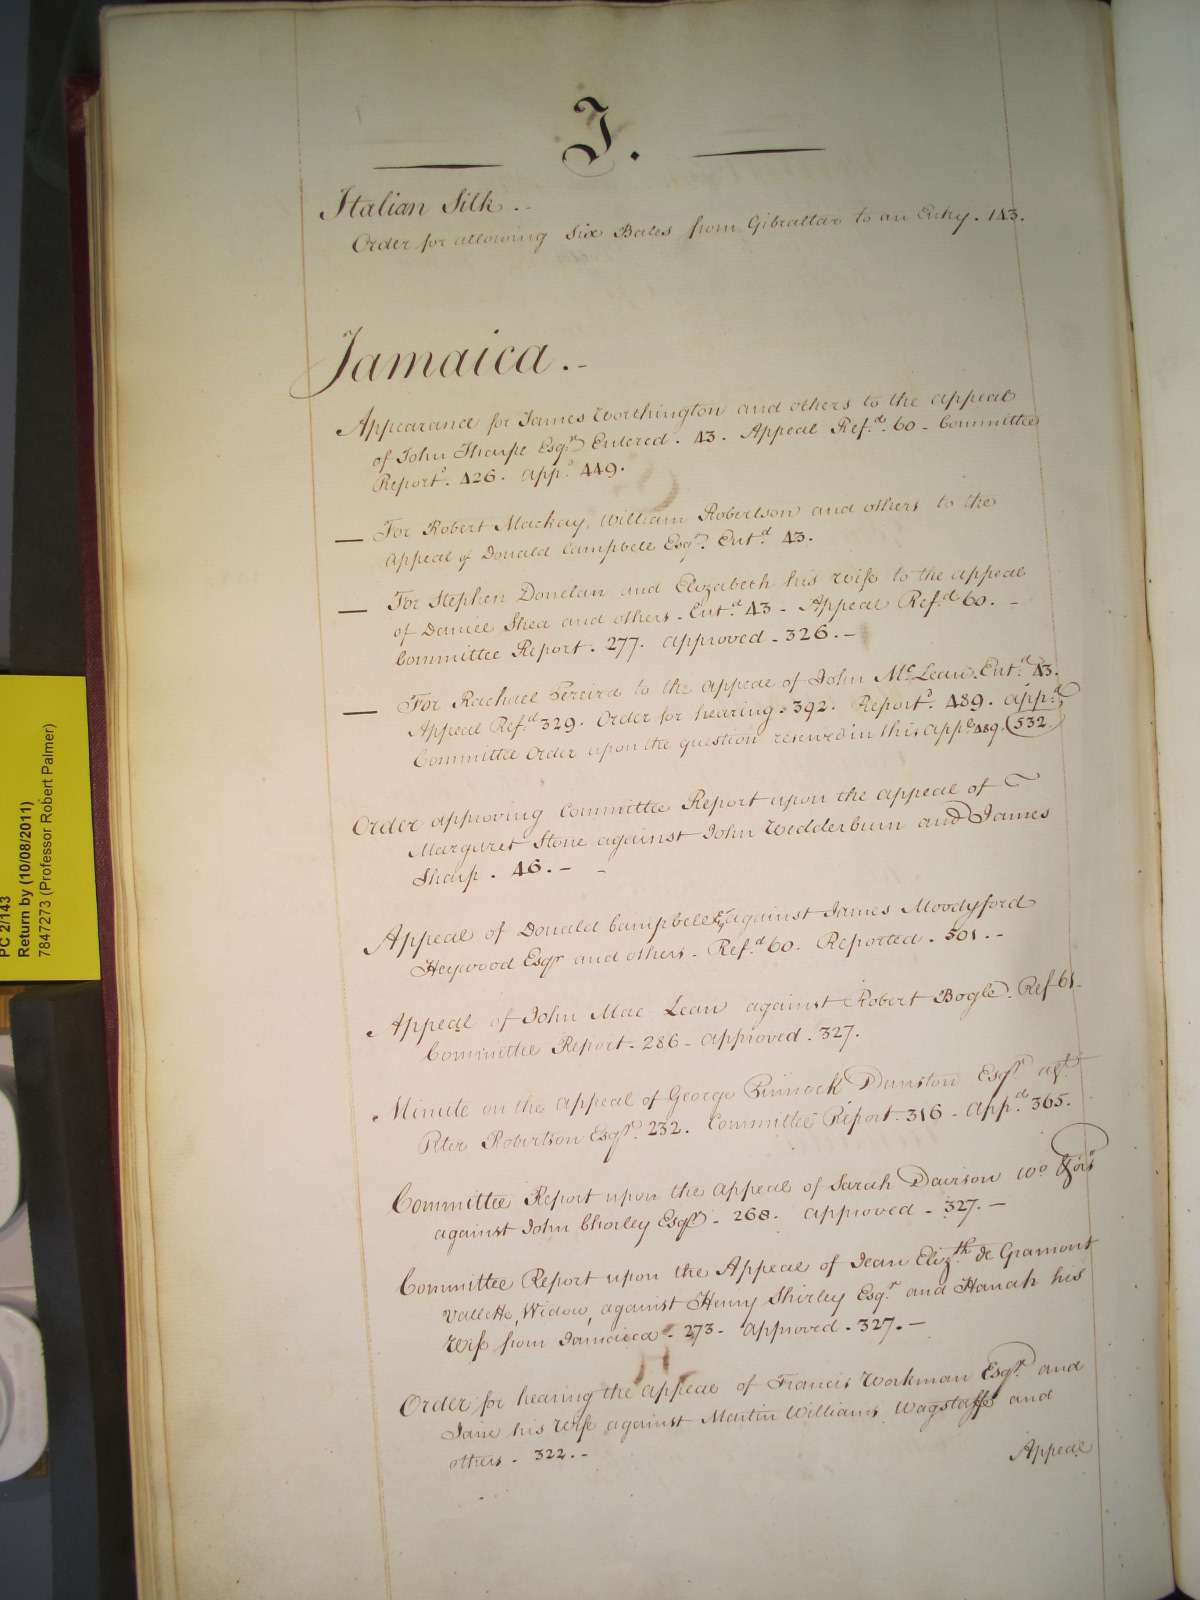 J.
Italian Silk.-
Order for allowing Six Bales from Gibraltar to an Entry. 143.
Jamaica.-
Appearance for James Worthington and others to the appeal
of John Tharpe Esqr. Entered. 43. Appeal Ref.d 60 - Committee
Report. 426. app.d 449.
— For Robert Mackay, William Robertson and others to the
appeal of Donald Campbell Esqr. Ent.d 43.
— For Stephen Donelan and Elizabeth his wife to the appeal
of Daniel Shea and others. Ent.d 43 - Appeal Ref.d 60. -
Committee Report. 277. approved - 326. -
— For Rachael Pereira to the appeal of John McLean. Ent.d 43.
Appeal Ref.d 329. Order for hearing. 392. Report.d 489. app.d
Committee Order upon the question reserved in this app.l 489. (532.
Order approving Committee Report upon the appeal of
Margaret Stone against John Wedderburn and James
Sharp. 46. - -
Appeal of Donald Campbell Esqr against James Moodyford
Heywood Esqr and others - Ref.d 60. Reported. 501. -
Appeal of John Mac Lean against Robert Bogle. Ref 61.
Committee Report. 286 - approved. 327.
Minute on the appeal of George Pinnock Dunston Esqr. agt.
Peter Robertson Esqr. 232. Committee Report. 316 - app.d 365.
Committee Report upon the appeal of Sarah Davison Wo &ors
against John Chorley Esqr - 268. approved - 327. -
Committee Report upon the Appeal of Jean Eliz.th de Gramont
Vallette, Widow, against Henry Shirley Esq.r and Hanah his
Wife from Jamaica - 273 - approved - 327. -
Order for hearing the appeal of Francis Workman Esqr. and
Jane his Wife against Martin Williams, Wagstaffe and
others. 322. -
Appeal
PC 2/143
Return by (10/08/2011)
7847273 (Professor Robert Palmer)